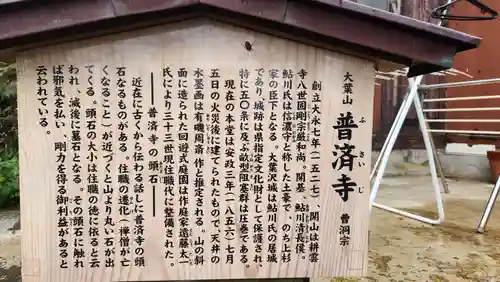 大葉山 普済寺 曹洞宗
ふさいじ
創立大永七年(一五二七)、開山は耕雲
寺八世固剛宗厳和尚。開基、鮎川清長侯。
鮎川氏は信濃守と称した土豪で、のち上杉
家の臣下となる。大葉沢城は鮎川氏の居城
であり、城跡は県指定文化財として保護され、
特に五〇条に及ぶ畝型阻塞群は圧巻である。
現在の本堂は安政三年(一八五六)七月
五日の火災後に建てられたもので、天井の
水墨画は有磯周斎 作と推定される。山の斜
面に造られた回遊式庭園は作庭家遠藤太一
氏により三十三世現住職代に整備された。
――普済寺の頭石――
近在に古くから伝わる話しに普済寺の頭
石なるものがある。住職の遷化(禅僧が亡
くなること)が近づくと山より丸い石が出
てくる。頭石の大小は住職の徳に依ると云
われ、滅後に墓石となる。その頭石に触れ
ば邪気を払い、剛力を得る御利益があると
云われている。